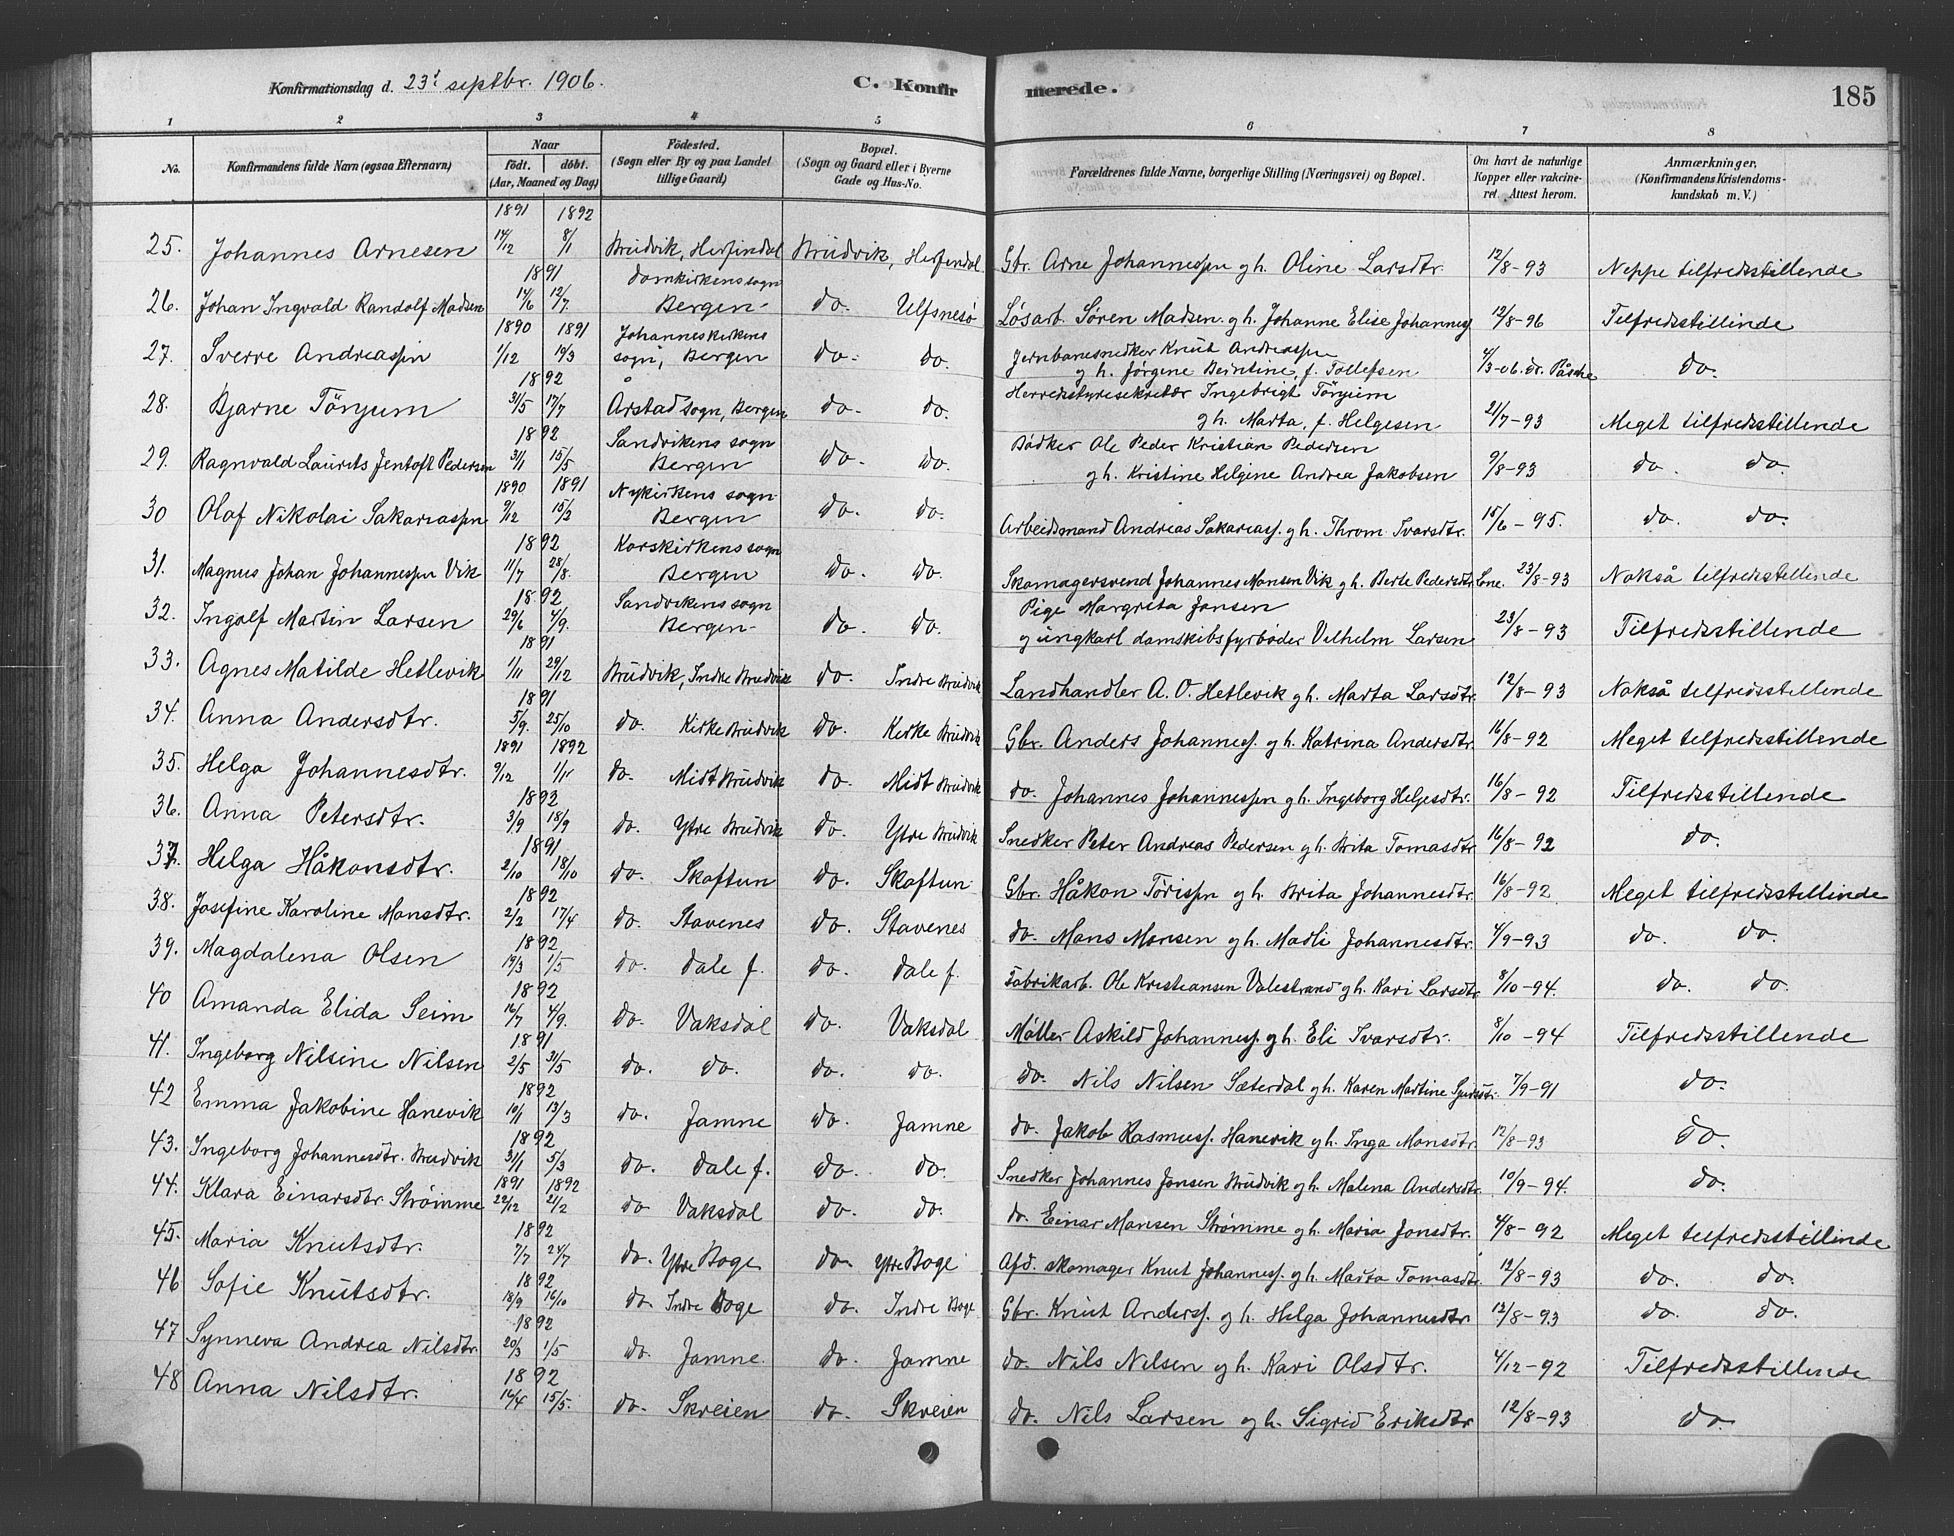 Konfirmationsdag d. 23' septbr. 1906. C. Konfirmerede. 185
1 2 3 4 5 6 7 8
No. Konfirmandens fulde Navn (ogsaa Efternavn) Naar födt. döbt. (Aar, Maaned og Dag) Födested. (Sogn eller By og paa Landet tillige Gaard) Bopæl. (Sogn og Gaard eller i Byerne Gade og Hus-No. Forældrenes fulde Navne, borgerlige Stilling (Næringsvei) og Bopæl. Om havt de naturlige Kopper eller vakcineret. Attest herom. Anmærkninger. (Konfirmandens Kristendomskundskab m. V.)
1891 1892
25. Johannes Arnesen 14/12 8/1 Brudvik, Herfindal Brudvik, Herfindal Gbr. Arne Johannessen og h. Oline Larsdtr. 12/8-93 Neppe tilfredsstillende
1891 Domkirkens sogn
26. Johan Ingvald Randolf Madsen 14/6 12/7. Bergen do. Ulfsnesø Løsarb. Søren Madsen og h. Johanne Elise Johannes 12/8-96 Tilfredsstillinde
1890 1891 Johanneskirkens
27. Sverre Andreassen 1/12 19/3 sogn, Bergen do. do. Jernbanesnedker Knut Andreassen
og h. Jørgene Berntine, f. Tollefsen 4/3-06. dr. Påsche do.
1892
28. Bjarne Tørjum 31/5 17/7 Årstad sogn, Bergen do. do. Herredsstyresekretær Ingebrigt Tørjum
og h. Marta, f. Helgesen 21/7-93 Meget tilfredsstillende
1892 Sandvikens sogn
29. Ragnvald Laurits Jentoft Pedersen 31/1 15/5 Bergen do. do. Bødker Ole Peder Kristian Pedersen
og h. Kristine Helgine Andrea Jakobsen 9/8-93 do. do.
1890 1891 Nykirkens sogn
30 Olaf Nikolai Sakariassen 9/12 15/3 Bergen do. do. Arbeidsmand Andreas Sakariass. og h. Throm Ivarsdtr. 15/6-95. do. do.
1892 Korskirkens sogn
31. Magnus Johan Johannessen Vik 11/7 28/8. Bergen do. do. Skomagersvend Johannes Monsen Vik og h. Berte Pedersdtr. Lone. 23/8-93 Nokså tilfredsstillende
1892 Sandvikens sogn
32. Ingolf Martin Larsen 29/6 4/9. Bergen do. do. Pige Margreta Jansen
og ungkarl damskibsfyrbøder Vilhelm Larsen 23/8-93 Tilfredsstillende
1891
33. Agnes Matilde Hetlevik 1/11 29/12 Brudvik, Indre Brudvik do. Indre Brudvik Landhandler A. O. Hetlevik og h. Marta Larsdtr. 12/8-93 Nokså tilfredsstillende
1891
34. Anna Andersdtr. 5/9. 25/10 do. Kirke Brudvik do. Kirke Brudvik Gbr. Anders Johanness. og h. Katrina Andersdtr. 16/8-92 Meget tilfredsstillende
1891 1892
35. Helga Johannesdtr. 9/12 1/11 do. Midt Brudvik do. Midt Brudvik do. Johannes Johannessen og h. Ingeborg Helgesdtr. 16/8-92 Tilfredsstillende
1892
36. Anna Petersdtr. 3/9 18/9 do. Ytre Brudvik do. Ytre Brudvik Snedker Peter Andreas Pedersen og h. Brita Tomasdtr. 16/8-92 do.
1891
37. Helga Håkonsdtr. 2/10 18/10 do. Skaftun do. Skaftun Gbr. Håkon Tørissen og h. Brita Johannesdtr. 16/8-92 Meget tilfredsstillinde
1892
38. Josefine Karoline Monsdtr. 2/2 17/4 do. Stavenes do. Stavenes do. Mons Monsen og h. Madli Johannesdtr. 4/9-93 do. do.
1892
39. Magdalena Olsen 19/3 1/5 do. Dale f. do. Dale f. Fabrikarb. Ole Kristiansen Valestrand og h. Kari Larsdtr. 8/10-94. do. do.
1892
40 Amanda Elida Seim 16/7 4/9. do. Vaksdal do. Vaksdal Møller Askild Johanness. og h. Eli Ivarsdtr. 8/10-94 Tilfredsstillende
1891
41. Ingeborg Nilsine Nilsen 2/5 31/5 do. do. do. do. do. Nils Nilsen Sæterdal og h. Karen Martine Sjursdtr. 7/9-91 do.
1892
42 Emma Jakobine Hanevik 10/1 13/3 do. Jamne do. Jamne do. Jakob Rasmuss. Hanevik og h. Inga Monsdtr. 12/8-93 do.
1892
43. Ingeborg Johannesdtr. Brudvik 31/1 5/3 do. Dale f. do. do. Snedker Johannes Jonsen Brudvik og h. Malena Andersdtr. 10/9-94. do.
1891 1892
44. Klara Einarsdtr Strømme 22/12 21/2 do Vaksdal do. do. do. Einar Monsen Strømme og h. Maria Jonsdtr. 4/8-92 Meget tilfredsstillinde
1892
45. Maria Knutsdtr. 7/7 24/7 do. Ytre Boge do. Ytre Boge Afd. skomager Knut Johanness. og h. Marta Tomasdtr. 12/8-93 do. do.
1892
46 Sofie Knutsdtr. 18/9 16/10 do. Indre Boge do. Indre Boge Gbr. Knut Anderss. og h. Helga Johannesdtr. 12/8-93 do. do.
1892
47 Synneva Andrea Nilsdtr. 20/3 1/5 do. Jamne. do. Jamne do. Nils Nilsen og h. Kari Olsdtr. 4/12-92 Tilfredsstillende
1892
48 Anna Nilsdtr. 16/4 15/5. do. Skreien do. Skreien do. Nils Larsen og h. Sigrid Eriksdtr 12/8-93 do.